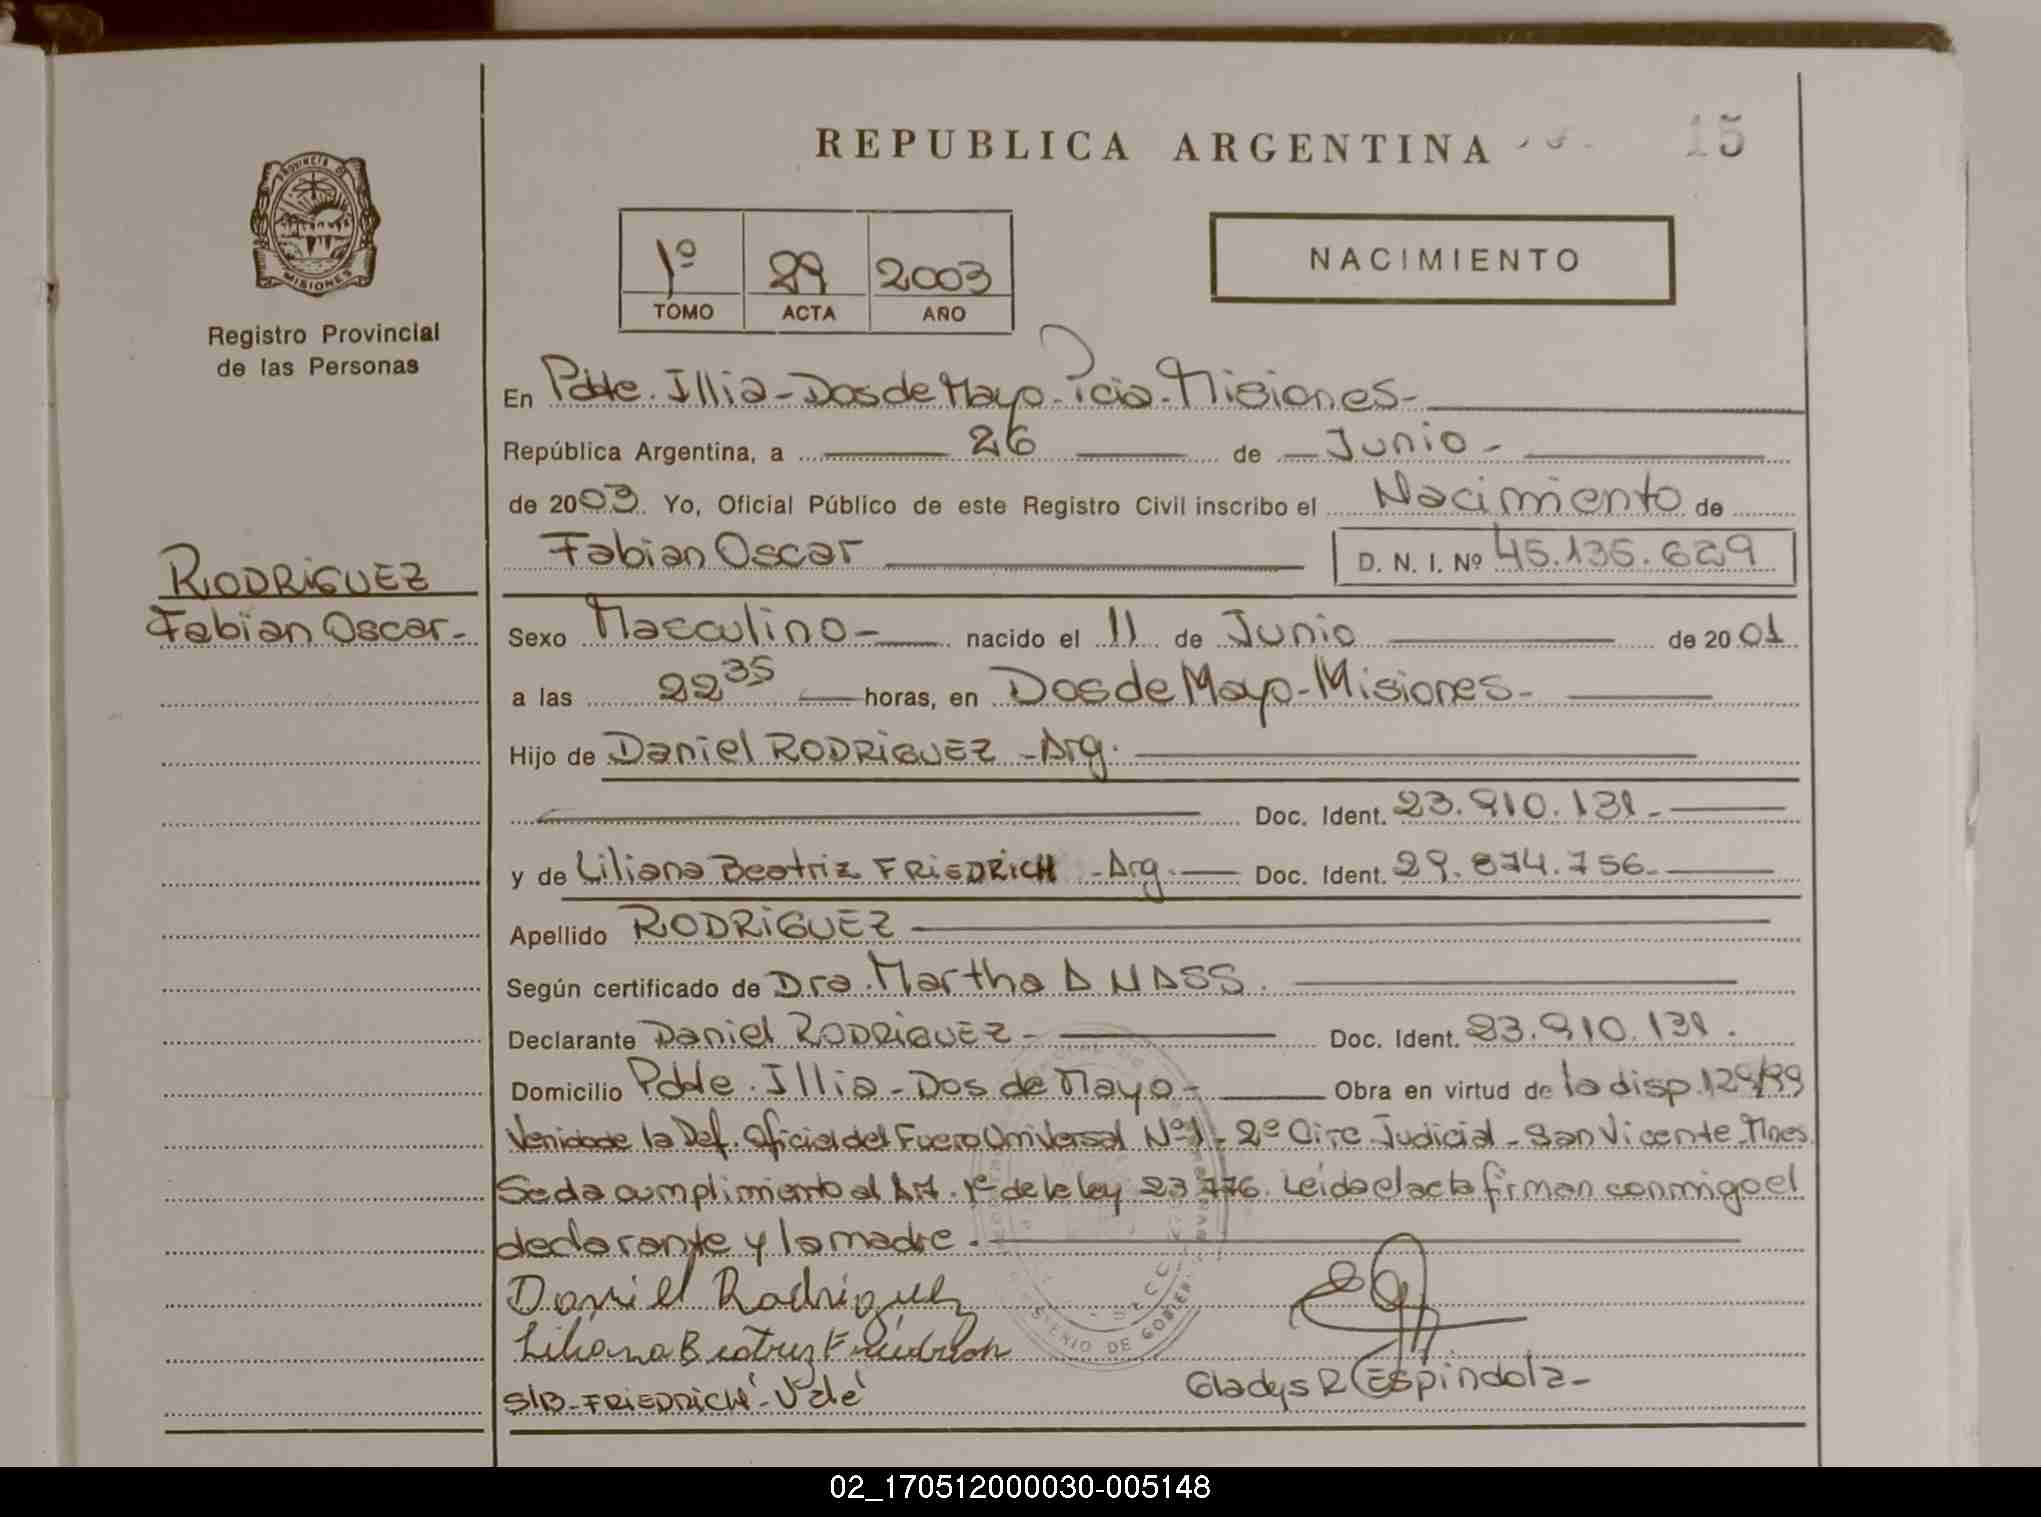 REPUBLICA ARGENTINA
15
PROVINCIA DE
MISIONES
Registro Provincial
de las Personas
1º 29 2003
TOMO ACTA AÑO
NACIMIENTO
En Pdte. Illia - Dos de Mayo - Pcia. Misiones -
República Argentina, a 26 de Junio -
de 2003. Yo, Oficial Público de este Registro Civil inscribo el Nacimiento de
Fabian Oscar D. N. I. Nº 45.135.629
RODRiGUEZ
Fabian Oscar -
Sexo Masculino - nacido el 11 de Junio de 2001
a las 22 35 horas, en Dos de Mayo - Misiones -
Hijo de Daniel RODRiGUEZ - Arg.
Doc. Ident. 23.910.131 -
y de Liliana Beatriz FRiEDRiCH - Arg. Doc. Ident. 29.874.756 -
Apellido RODRiGUEZ
Según certificado de Dra. Martha A NASS.
Declarante Daniel RODRiGUEZ - Doc. Ident. 23.910.131.
Domicilio Pdte. Illia - Dos de Mayo - Obra en virtud de la disp. 129/99
Venida de la Def. Oficial del Fuero Universal Nº 1 - 2º Circ. Judicial - San Vicente - Mnes.
Se da cumplimiento al Art. 1º de la ley 23.776. Leída el acta firman conmigo el
declarante y la madre.
Daniel Rodriguez
Liliana Beatriz Friedrich
S/B - FRiEDRiCH - Vale
Gladys R Espindola -
MINISTERIO DE GOBIERNO
02_170512000030-005148